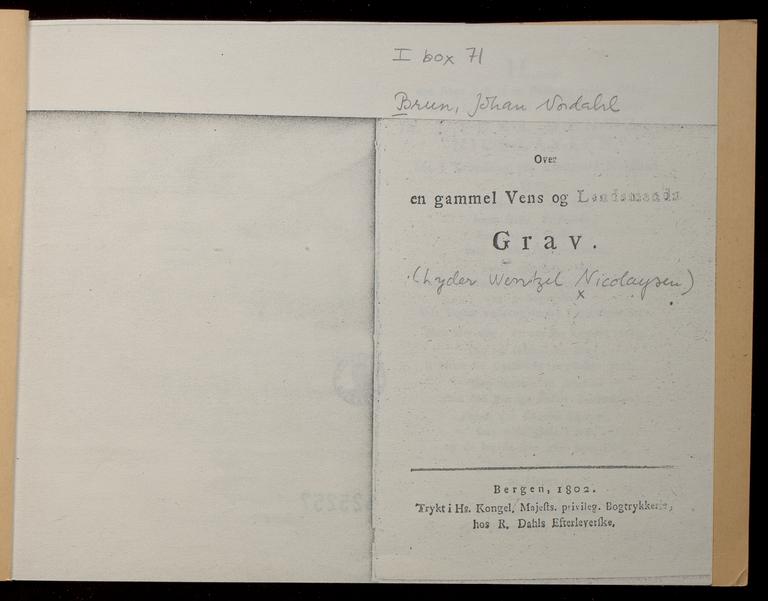 I box 71
Brun, Johan Nordahl
Over
en gammel Vens og Landsmands
Grav.
(Lyder Wentzel Nicolaysen)
x
Bergen, 1802.
Trykt i Hs. Kongel. Majeſts. privileg. Bogtrykkerie,
hos R. Dahls Efterleverſke.